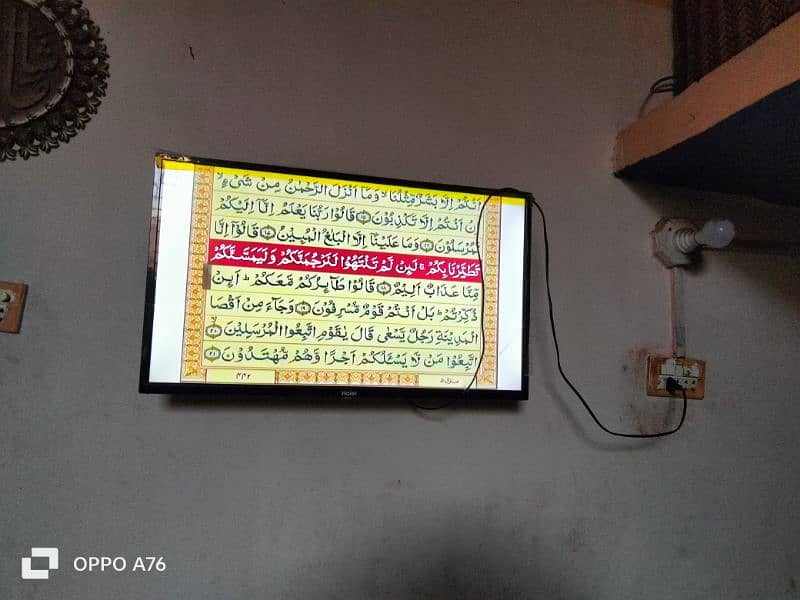 اَنْتُمْ اِلَّا بَشَرٌ مِّثْلُنَا ۙ وَمَاۤ اَنْزَلَ الرَّحْمٰنُ مِنْ شَیْءٍ ۙ
اِنْ اَنْتُمْ اِلَّا تَكْذِبُوْنَ ﴿۱۵﴾ قَالُوْا رَبُّنَا یَعْلَمُ اِنَّاۤ اِلَیْكُمْ
لَمُرْسَلُوْنَ ﴿۱۶﴾ وَمَا عَلَیْنَاۤ اِلَّا الْبَلٰغُ الْمُبِیْنُ ﴿۱۷﴾ قَالُوْۤا اِنَّا
تَطَیَّرْنَا بِكُمْ ۚ لَىِٕنْ لَّمْ تَنْتَهُوْا لَنَرْجُمَنَّكُمْ وَ لَیَمَسَّنَّكُمْ
مِّنَّا عَذَابٌ اَلِیْمٌ ﴿۱۸﴾ قَالُوْا طَآىِٕرُكُمْ مَّعَكُمْ ؕ اَىِٕنْ
ذُكِّرْتُمْ ؕ بَلْ اَنْتُمْ قَوْمٌ مُّسْرِفُوْنَ ﴿۱۹﴾ وَجَآءَ مِنْ اَقْصَا
الْمَدِیْنَةِ رَجُلٌ یَّسْعٰی قَالَ یٰقَوْمِ اتَّبِعُوا الْمُرْسَلِیْنَ ﴿۲۰﴾
اتَّبِعُوْا مَنْ لَّا یَسْـَٔلُكُمْ اَجْرًا وَّهُمْ مُّهْتَدُوْنَ ﴿۲۱﴾
۴۴۲
Haier
OPPO A76